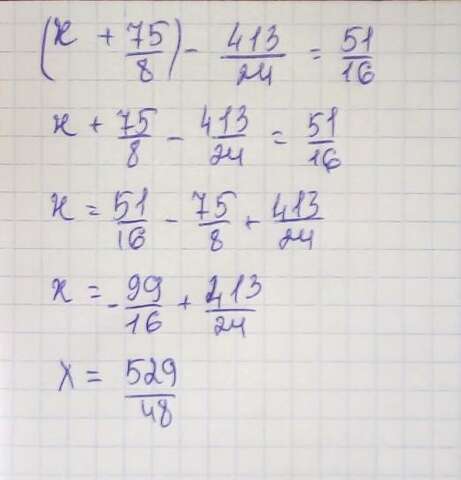 (x + 75/8) - 413/24 = 51/16
x + 75/8 - 413/24 = 51/16
x = 51/16 - 75/8 + 413/24
x = - 99/16 + 413/24
x = 529/48